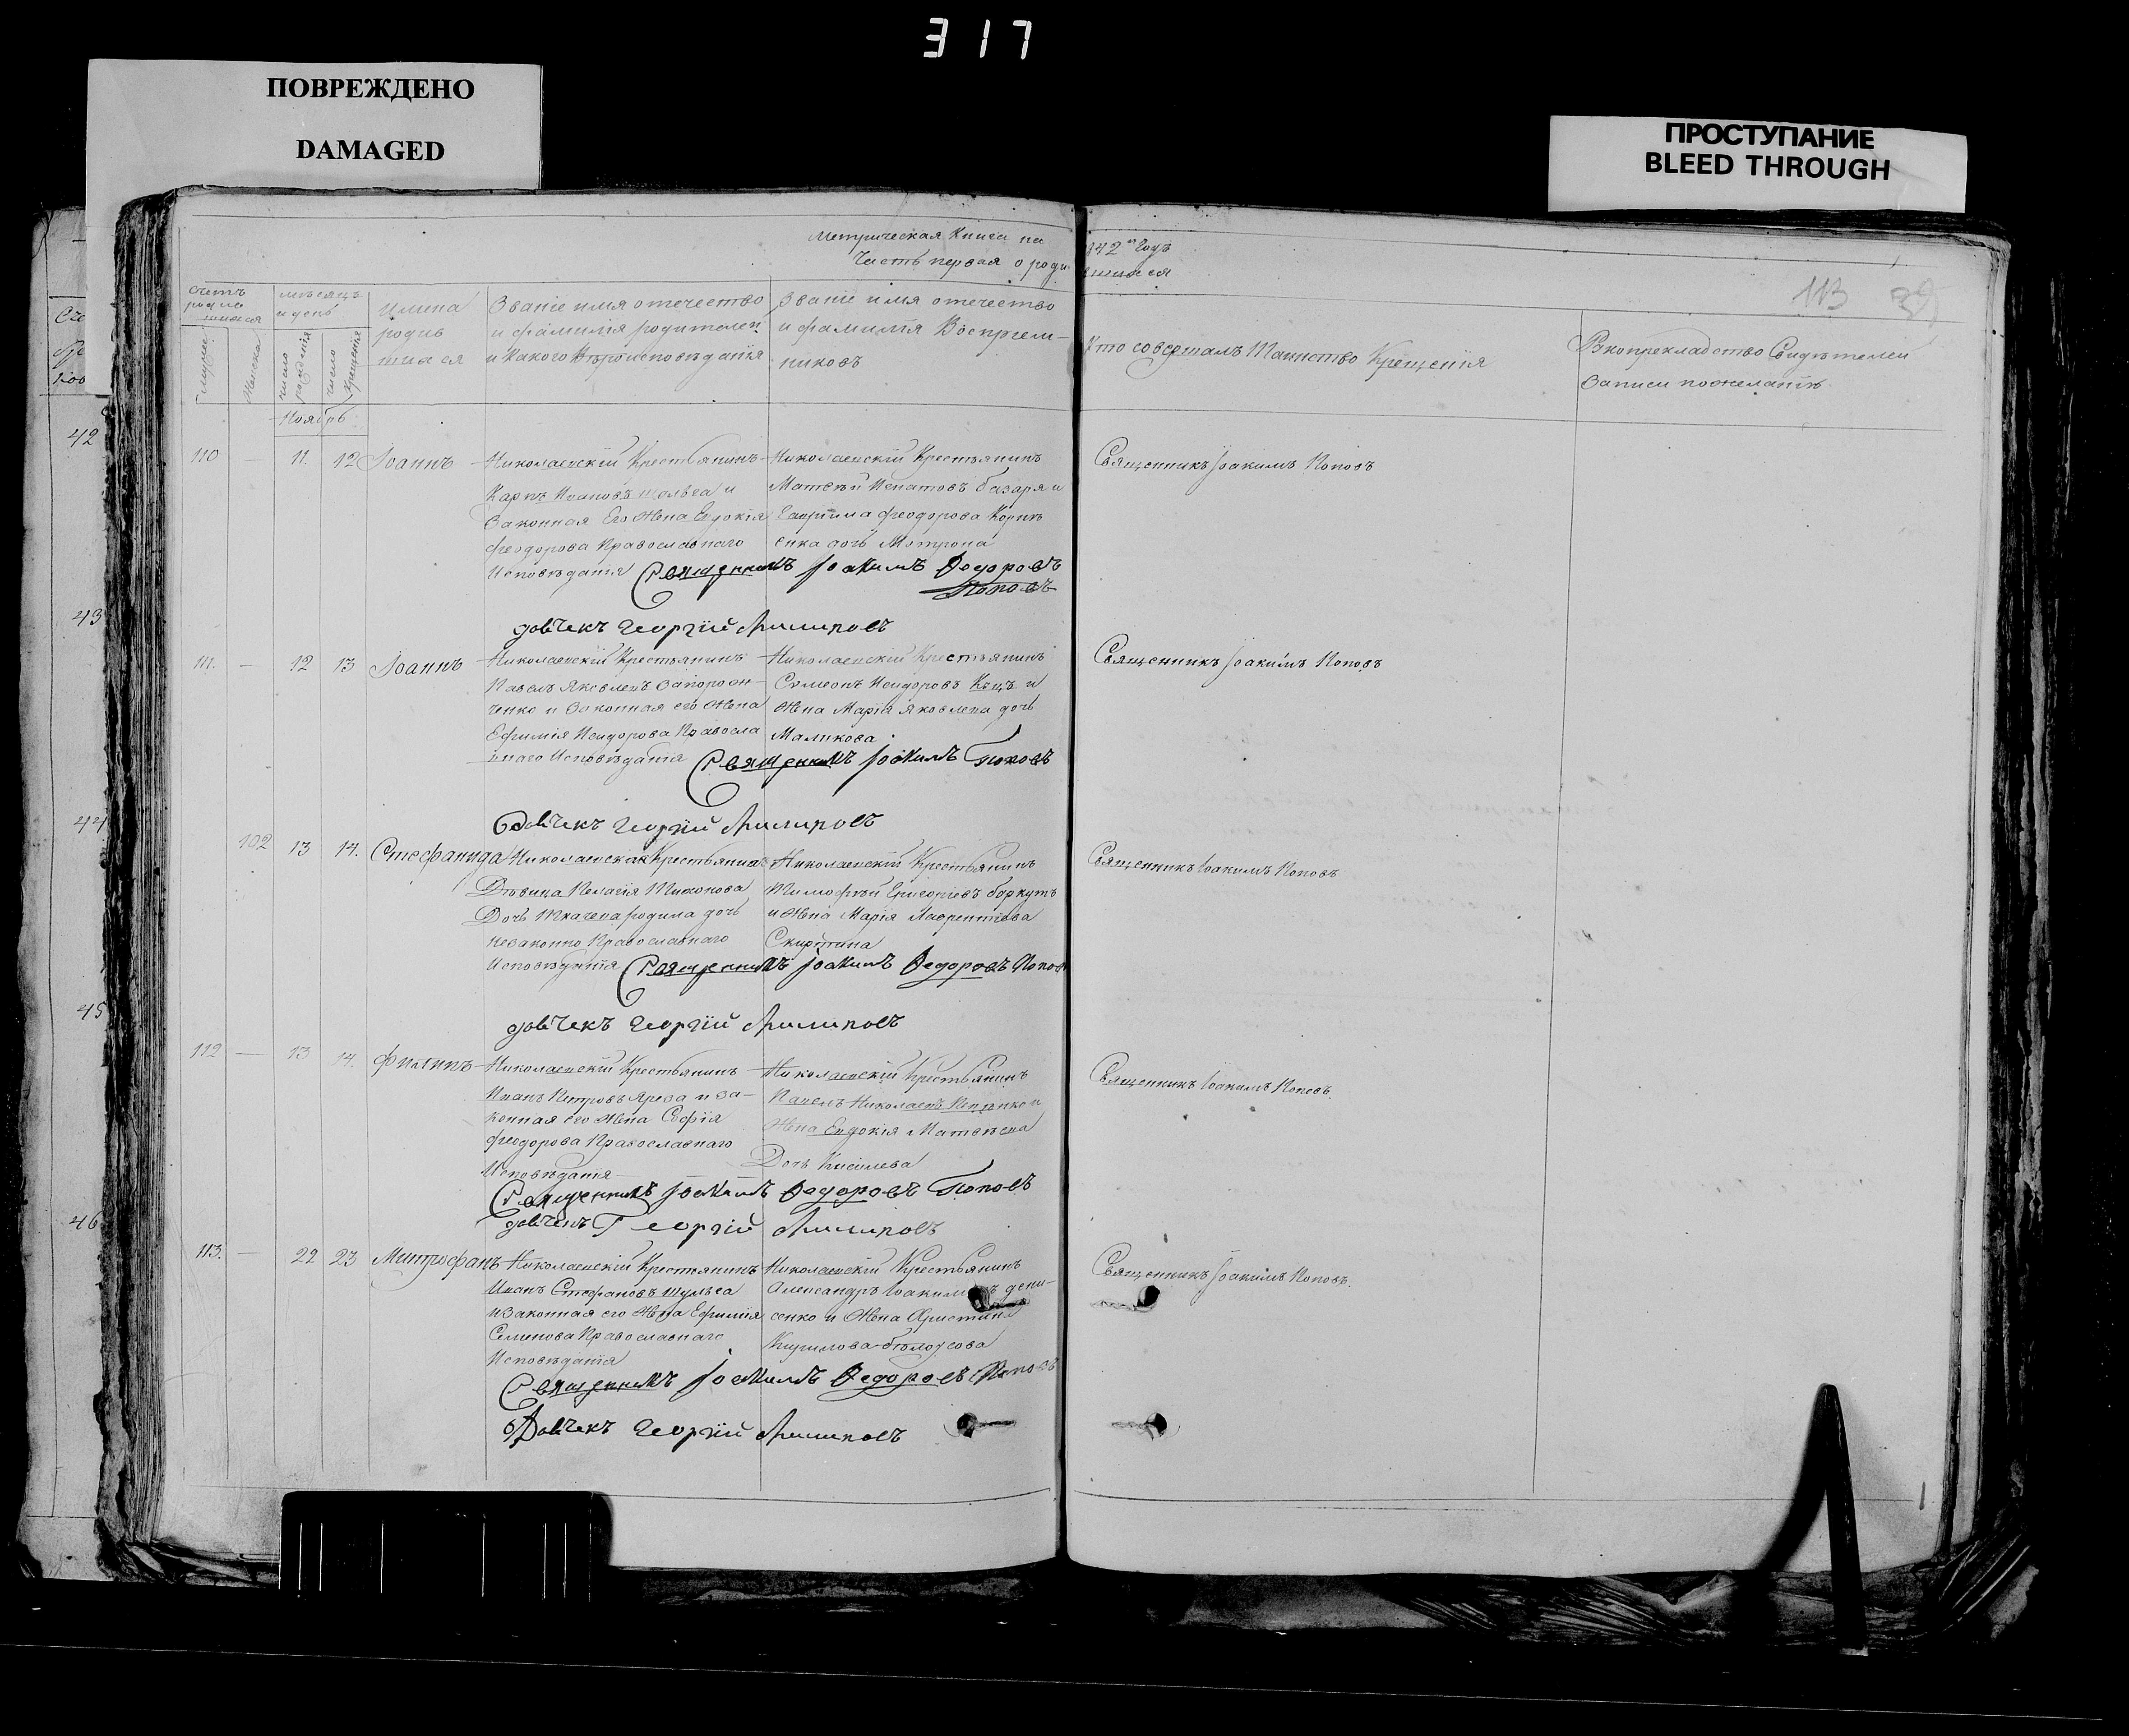 317
ПОВРЕЖДЕНО
DAMAGED
ПРОСТУПАНИЕ
BLEED THROUGH
Метрическая Книга на 842 годъ
Часть первая о роди вшихся
113
Счетъ родившихся
мужес:
Женска
мѣсяцъ и день
число рожденія
число крещенія
имена родившихся
Званіе имя отечество
и фамилія родителей
и какого Вѣроисповѣданія
Званіе имя отечество
и фамилія Воспріем-
никовъ
Кто совершалъ Таинство Крещенія
Свидѣтелей
Записи пожеланію
Ноябрь
42
110 — 11. 12 Іоаннъ
Николаевскій Крестьянинъ
Карпъ Ивановъ и
Законная Его Жена Евдокія
Феодорова Православнаго
Исповѣданія
Николаевскій Крестьянинъ
Матвѣй Игнатовъ базаря и
Гавріила Феодорова
енка дочь Матрона
Священникъ Іоакимъ Поповъ
Священникъ Іоакимъ Федоровъ
Поповъ
43
Георгій
111. — 12 13 Іоаннъ
Николаевскій Крестьянинъ
Павелъ Яковлевъ Запорож-
ченко и Законная его Жена
Ефимія Исидорова Правосла
внаго Исповѣданія
Николаевскій Крестьянинъ
Симеонъ Исидоровъ и
Жена Марія Яковлева дочь
Маликова
Священникъ Іоакимъ Поповъ
Священникъ Іоакимъ Поповъ
44
Георгій
102 13 14. Стефанида
Николаевская Крестьянка
Дѣвица Пелагія Тихонова
Дочь Ткачева родила дочь
незаконно Православнаго
Исповѣданія
Николаевскій Крестьянинъ
Тимофѣй боркутъ
и Жена Марія Лаврентіева
Священникъ Іоакимъ Поповъ
Священникъ Іоакимъ Федоровъ Попов
45
Георгій
112 — 13 14. Филипъ
Николаевскій Крестьянинъ
Иванъ Петровъ Яреза и За-
конная его Жена Софія
Феодорова Православнаго
Исповѣданія
Николаевскій Крестьянинъ
Павелъ Николаевъ и
Жена Евдокія Матвѣева
Дочь Киселева
Священникъ Іоакимъ Поповъ
Священникъ Іоакимъ Федоровъ Поповъ
46
Георгій
113. — 22 23 Митрофанъ
Николаевскій Крестьянинъ
Иванъ Стефановъ Шульга
и Законная его Жена Ефимія
Семенова Православнаго
Исповѣданія
Николаевскій Крестьянинъ
Александръ дени-
сенко и Жена Христина
Кирилова бѣлоусова
Священникъ Іоакимъ Поповъ
Священникъ Іоакимъ Федоровъ Поповъ
Георгій